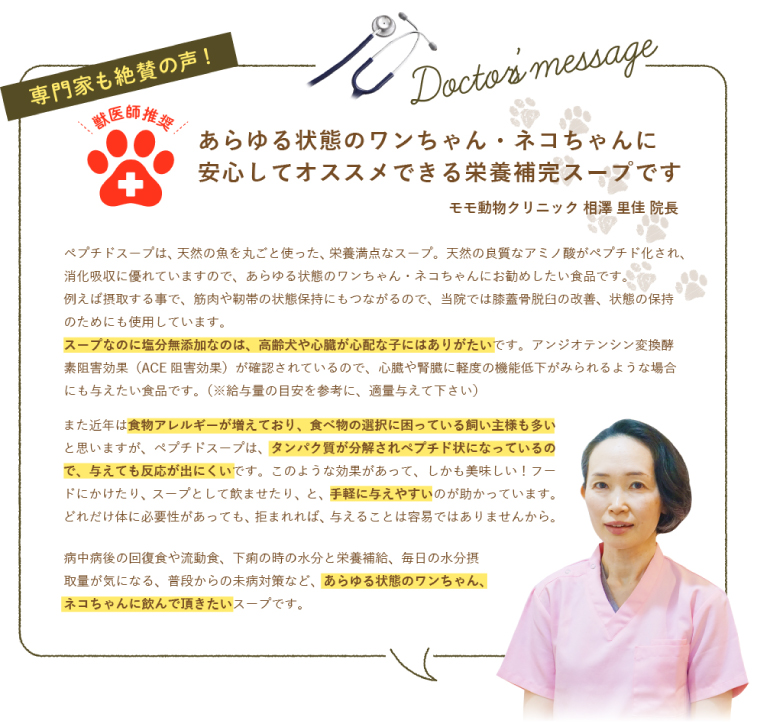 Doctor's message
専門家も絶賛の声！
獣医師推奨
あらゆる状態のワンちゃん・ネコちゃんに
安心してオススメできる栄養補完スープです
モモ動物クリニック 相澤 里佳 院長
ペプチドスープは、天然の魚を丸ごと使った、栄養満点なスープ。天然の良質なアミノ酸がペプチド化され、
消化吸収に優れていますので、あらゆる状態のワンちゃん・ネコちゃんにお勧めしたい食品です。
例えば摂取する事で、筋肉や靭帯の状態保持にもつながるので、当院では膝蓋骨脱臼の改善、状態の保持
のためにも使用しています。
スープなのに塩分無添加なのは、高齢犬や心臓が心配な子にはありがたいです。アンジオテンシン変換酵
素阻害効果（ACE 阻害効果）が確認されているので、心臓や腎臓に軽度の機能低下がみられるような場合
にも与えたい食品です。（※給与量の目安を参考に、適量与えて下さい）
また近年は食物アレルギーが増えており、食べ物の選択に困っている飼い主様も多い
と思いますが、ペプチドスープは、タンパク質が分解されペプチド状になっているの
で、与えても反応が出にくいです。このような効果があって、しかも美味しい！フー
ドにかけたり、スープとして飲ませたり、と、手軽に与えやすいのが助かっています。
どれだけ体に必要性があっても、拒まれれば、与えることは容易ではありませんから。
病中病後の回復食や流動食、下痢の時の水分と栄養補給、毎日の水分摂
取量が気になる、普段からの未病対策など、あらゆる状態のワンちゃん、
ネコちゃんに飲んで頂きたいスープです。